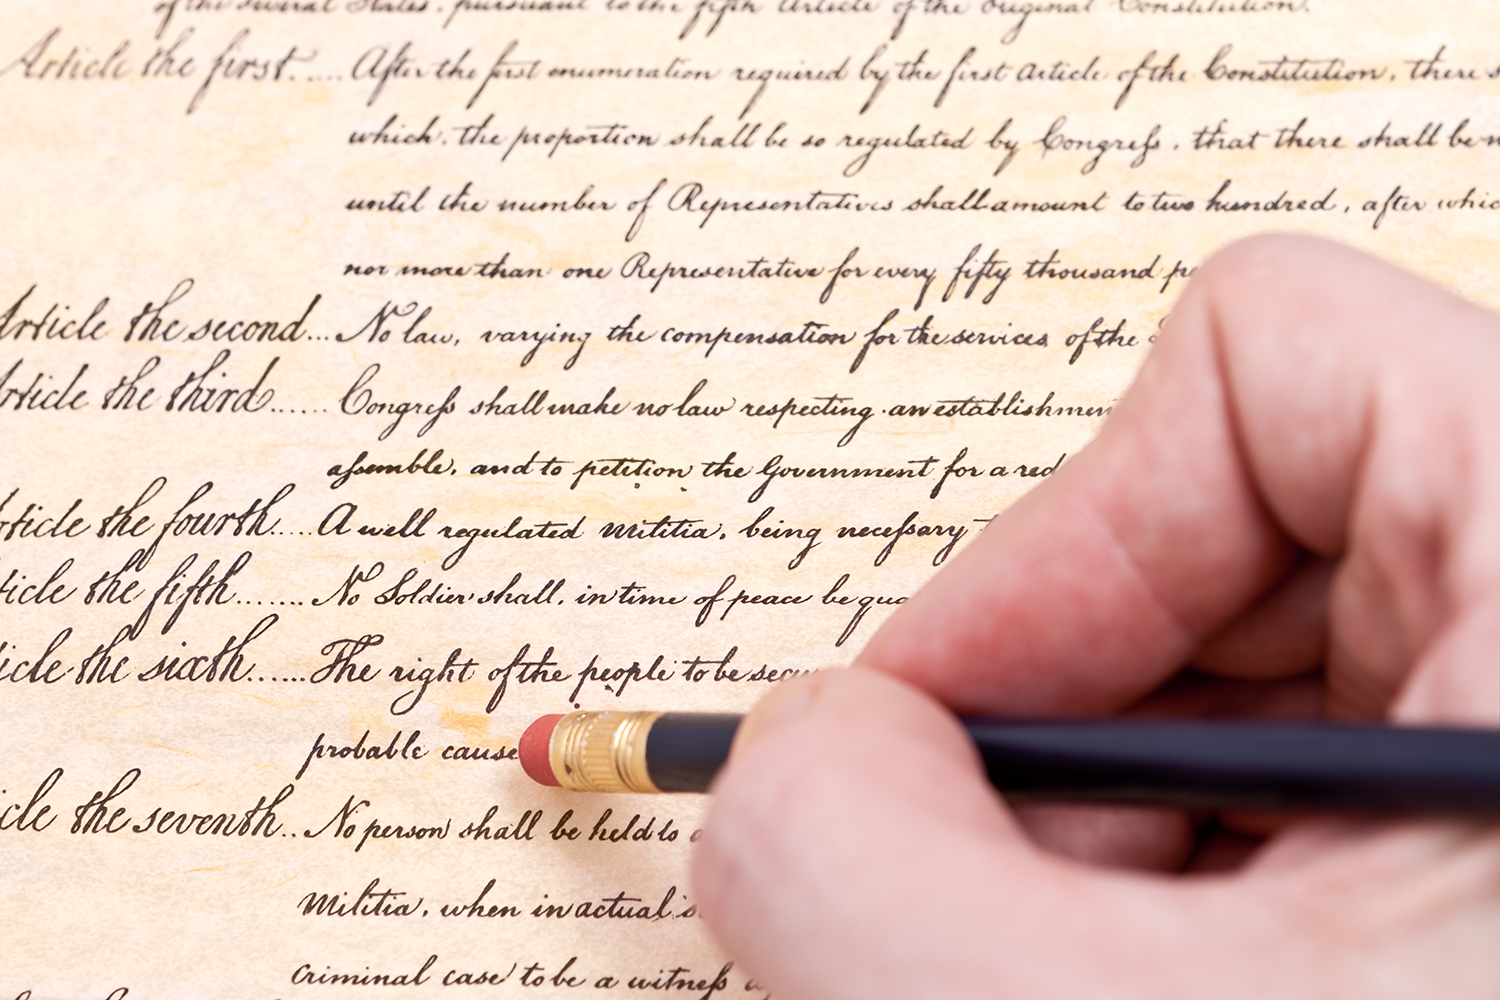 of the several States, pursuant to the fifth Article of the Original Constitution.
Article the first...... After the first enumeration required by the first Article of the Constitution, there
which, the proportion shall be so regulated by Congress, that there shall be
until the number of Representatives shall amount to two hundred, after
nor more than one Representative for every fifty thousand
Article the second... No law, varying the compensation for the services of the
Article the third...... Congress shall make no law respecting an
assemble, and to petition the Government for a
Article the fourth..... A well regulated Militia, being necessary
ticle the fifth....... No Soldier shall, in time of peace be
icle the sixth...... The right of the people to be
probable cause
cle the seventh.. No person shall be held to
Militia, when in actual
criminal case to be a witness